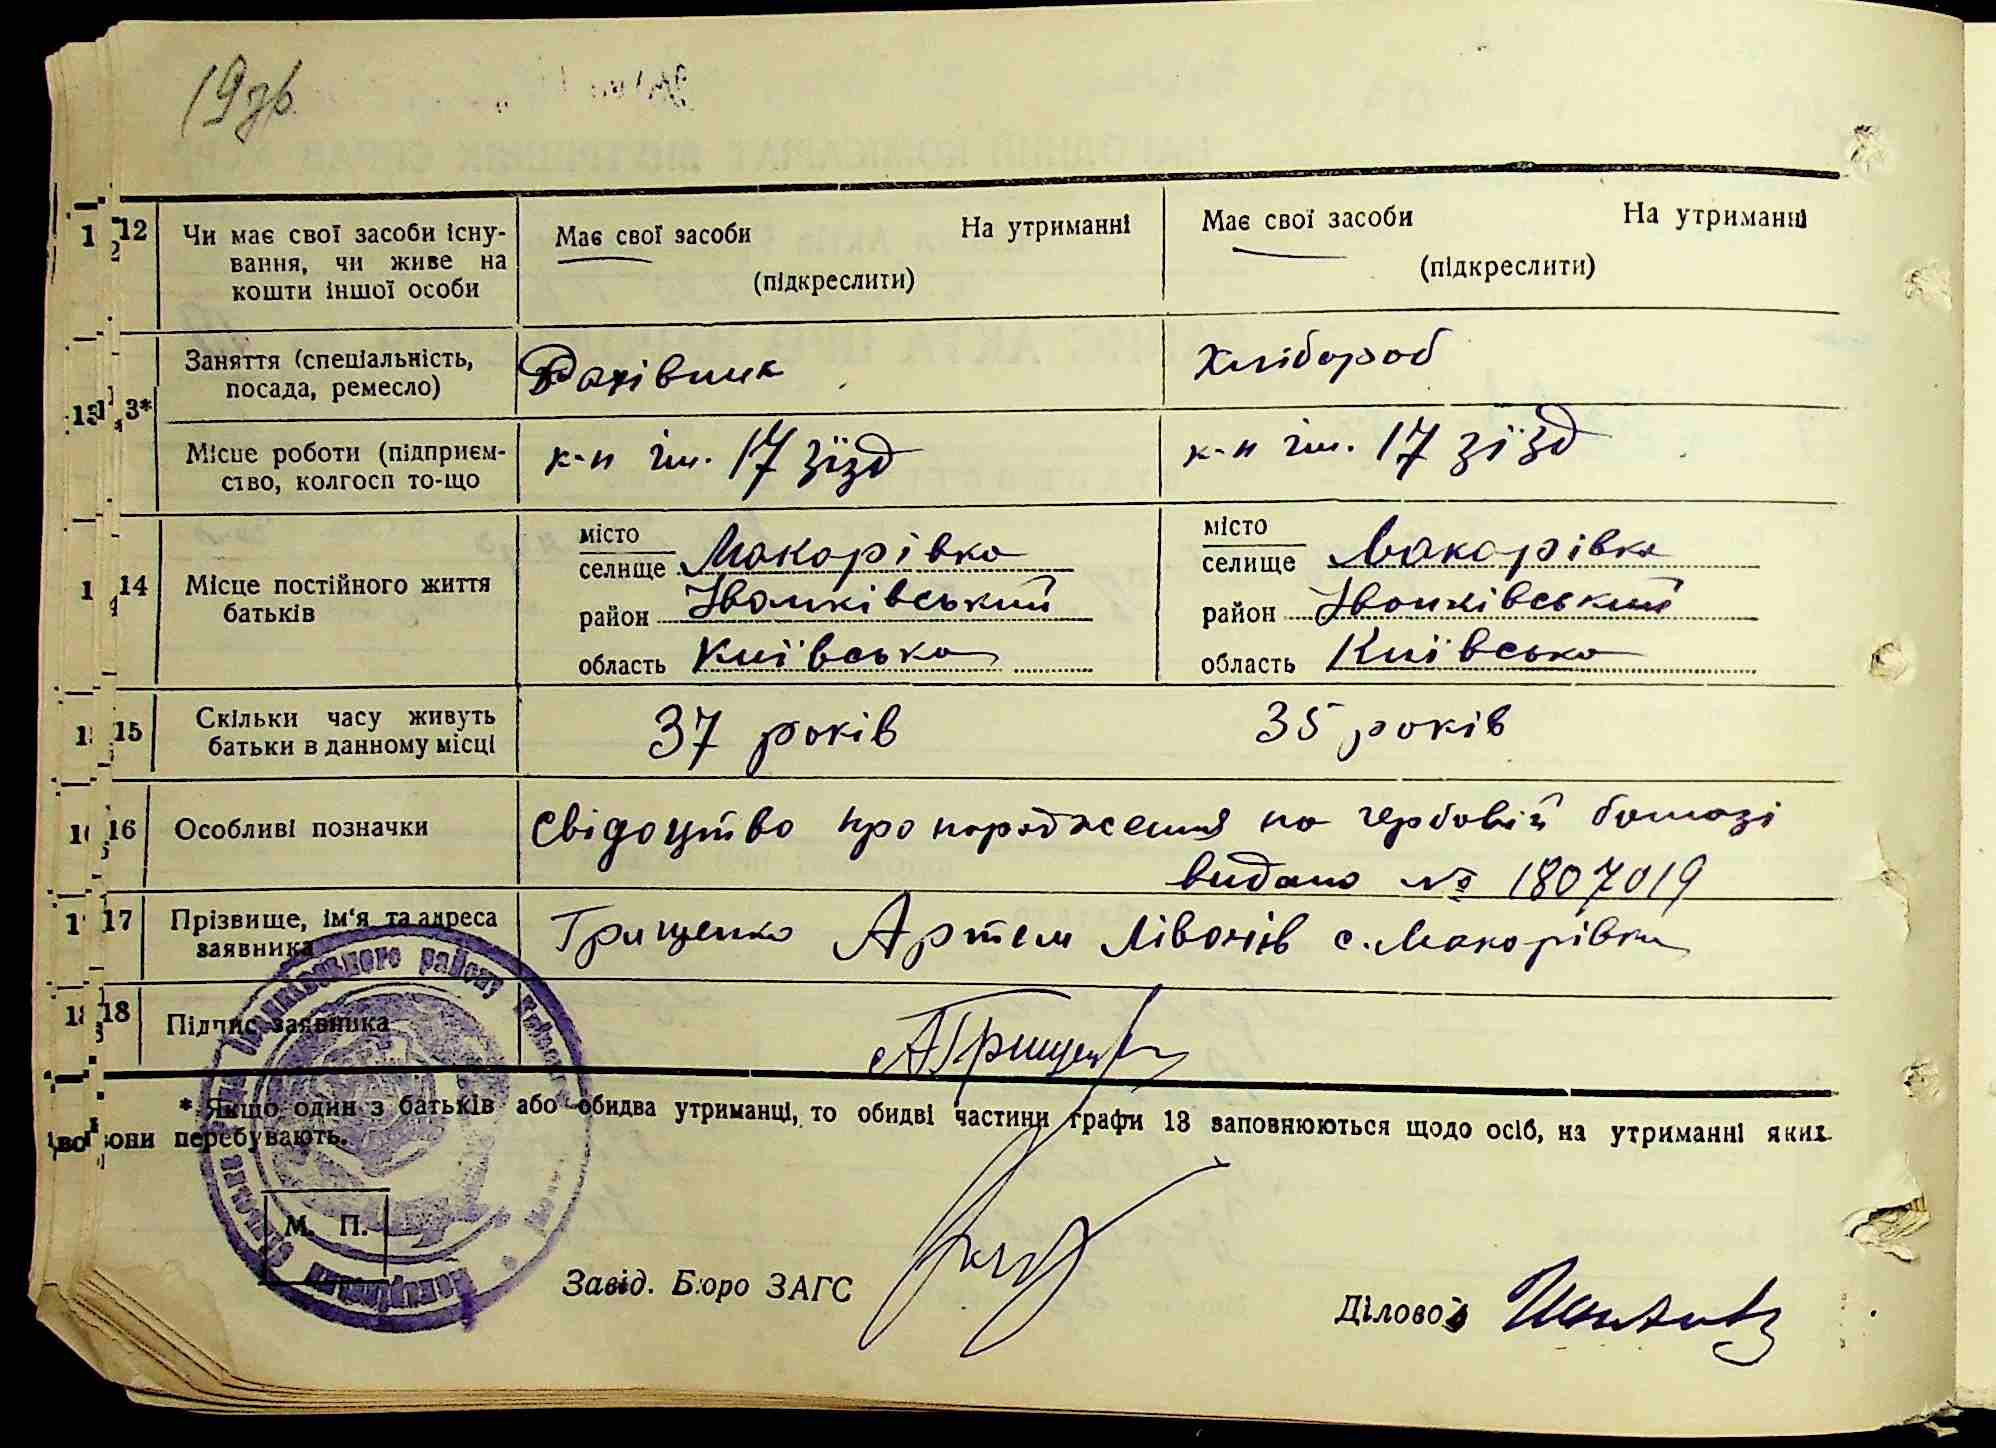 19зв.
12 Чи має свої засоби існу- Має свої засоби На утриманні Має свої засоби На утриманні
вання, чи живе на (підкреслити) (підкреслити)
кошти іншої особи
Заняття (спеціальність, Рахівник Хлібороб
посада, ремесло)
13*
Місце роботи (підприєм- к-п ім. 17 зїзд к-п ім. 17 зїзд
ство, колгосп то-що
місто місто
селище Макарівка селище Макарівка
14 Місце постійного життя район Іванківський район Іванківський
батьків
область Київська область Київська
15 Скільки часу живуть 37 років 35 років
батьки в данному місці
16 Особливі позначки Свідоцтво про народження на гербовій бумазі
видано № 1807019
17 Прізвище, ім'я та адреса Грищенко Артем с. Макарівка
заявника
18 Підпис заявника АГрищен
* Якщо один з батьків або обидва утриманці, то обидві частини графи 13 заповнюються щодо осіб, на утриманні яких
вони перебувають.
М. П.
Завід. Бюро ЗАГС
Діловод